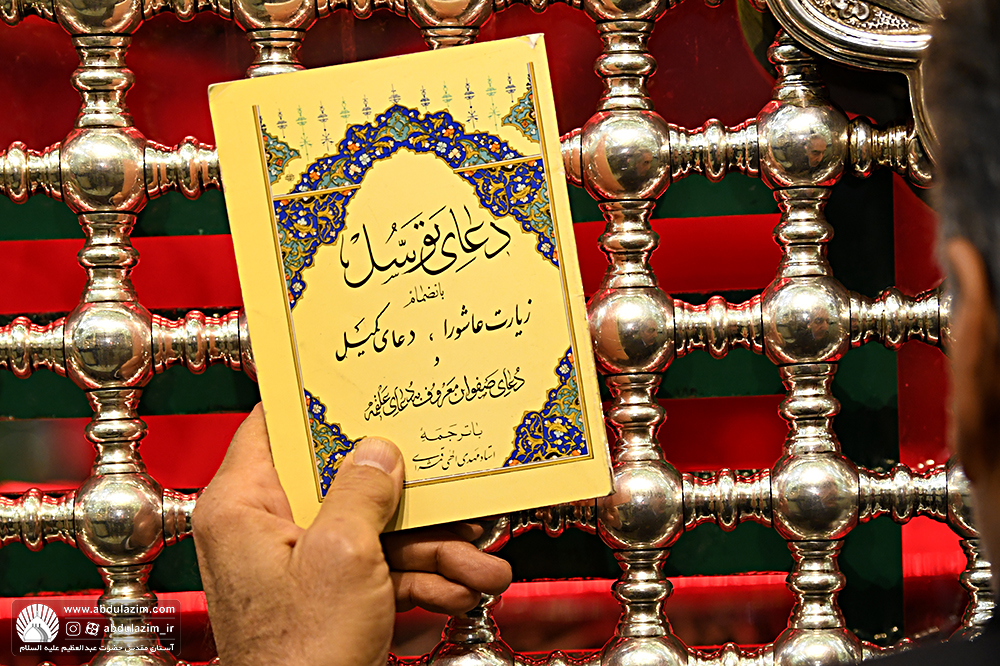 دعای توسّل
بانضمام
زیارت عاشورا ، دعای کمیل
و
دعای صفوان معروف به دعای علقمه
با ترجمهٔ
استاد مهدی الهی قمشه‌ای
www.abdulazim.com
abdulazim_ir
آستان مقدس حضرت عبدالعظیم علیه السلام